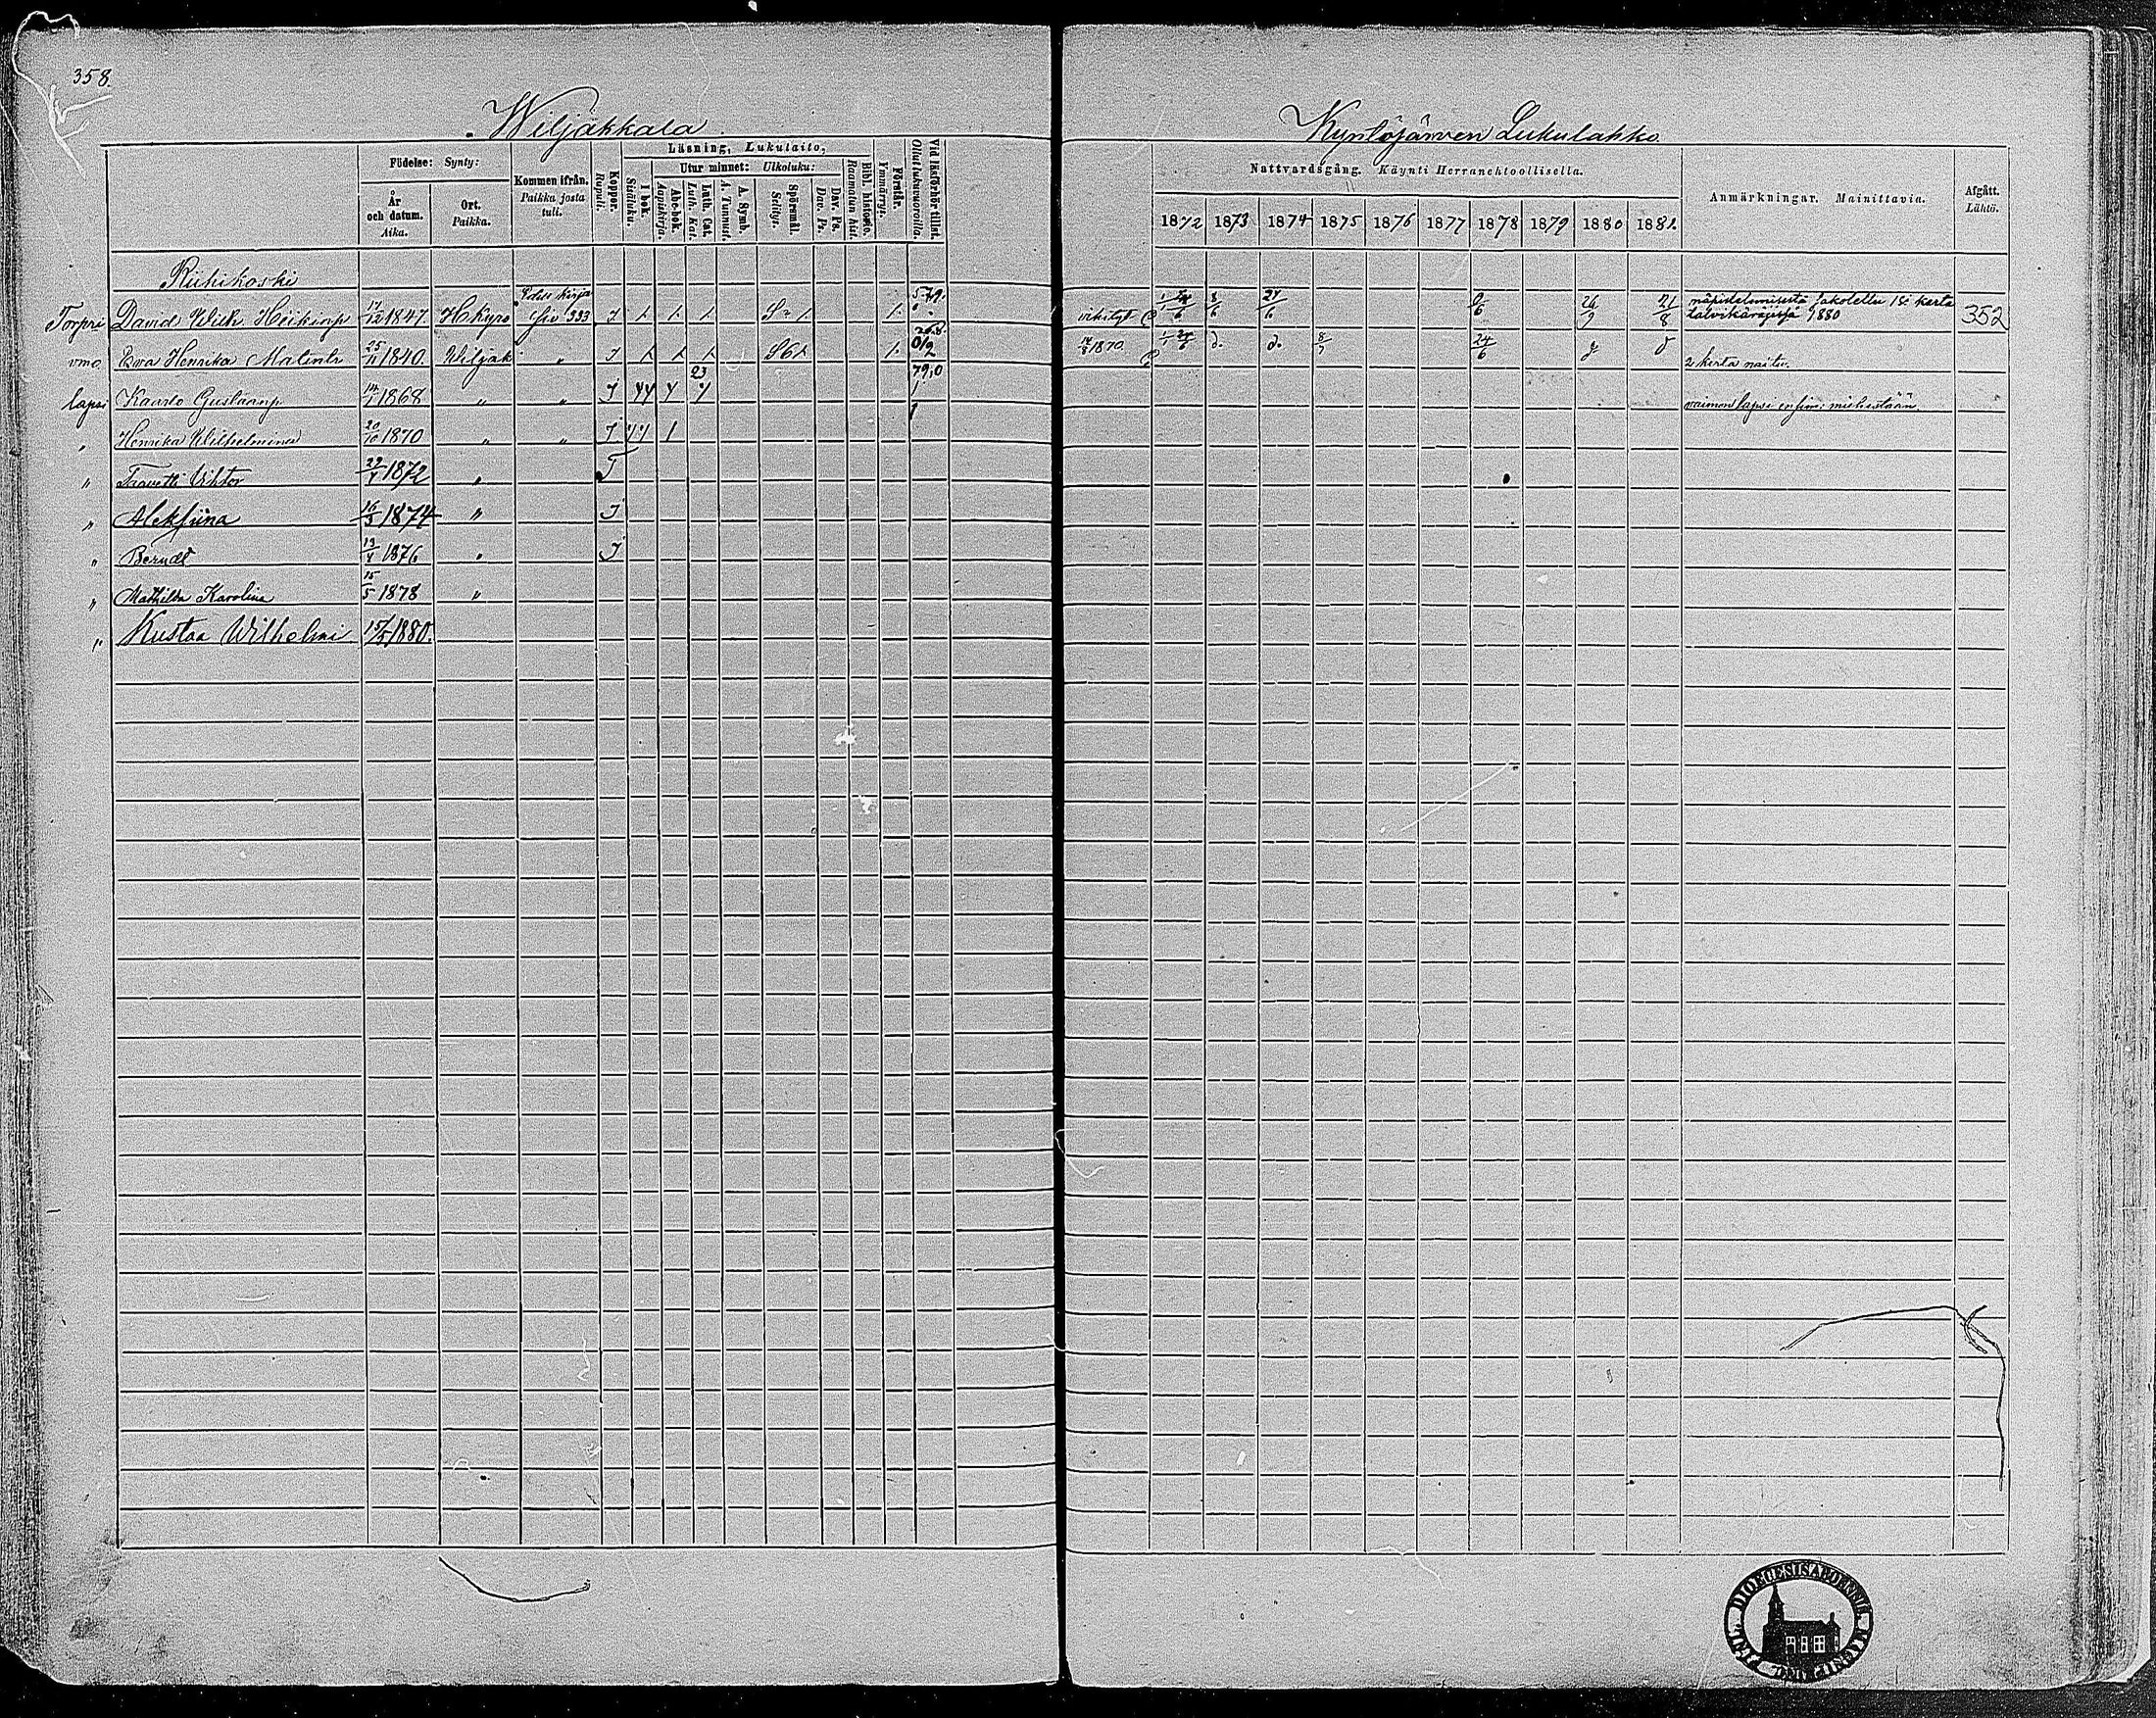 358.
Wiljakkala.
Födelse: Synty:
År och datum. Aika.
Ort. Paikka.
Kommen ifrån. Paikka josta tuli.
Koppor. Rupuli.
Läsning, Lukulaito,
I bok. Sisäluku.
Utur minnet: Ulkoluku:
Abc-bok. Aapiskirja.
Luth. Cat. Luth. Kat.
A. Symb. A. Tunnust.
Spörsmål. Selitys.
Dav. Ps. Dav. Ps.
Bibl. historie. Raamatun hist.
Förstår. Ymmärrys.
Vid läsförhör tillst. Ollut lukuvuoroilla.
Riihikoski
Torpri David Wilh. Heikinp 17/12 1847 Hkyro Edell kirja siv 333 J 579.
vmo Ewa Henrika Matintr 25/11 1840. Wiljak " J
lapsi Kaarlo Gustaanp 14/1 1868 " " J
" Henrika Wilhelmina 20/10 1870 " " J
" Taavetti Vihtor 22/4 1872 "
" Aleksiina 16/3 1874 " J
" Berndt 13/4 1876 " J
" Mathilda Karolina 15/5 1878 "
" Kustaa Wilhelmi 15/5 1880.
Kyrölöjärven Lukulahko.
Nattvardsgång. Käynti Herranehtoollisella.
1872 1873 1874 1875 1876 1877 1878 1879 1880 1881
Anmärkningar. Mainittavia.
Afgått. Lähtö.
vihityt 8/6 24/6 26/9 21/8 näpistelemisestä sakotettu 1si kerta
talvikäräjissä 1880 352
1870 8/7 24/6 2 kerta naitu.
vaimon lapsi ensim: miehestään.